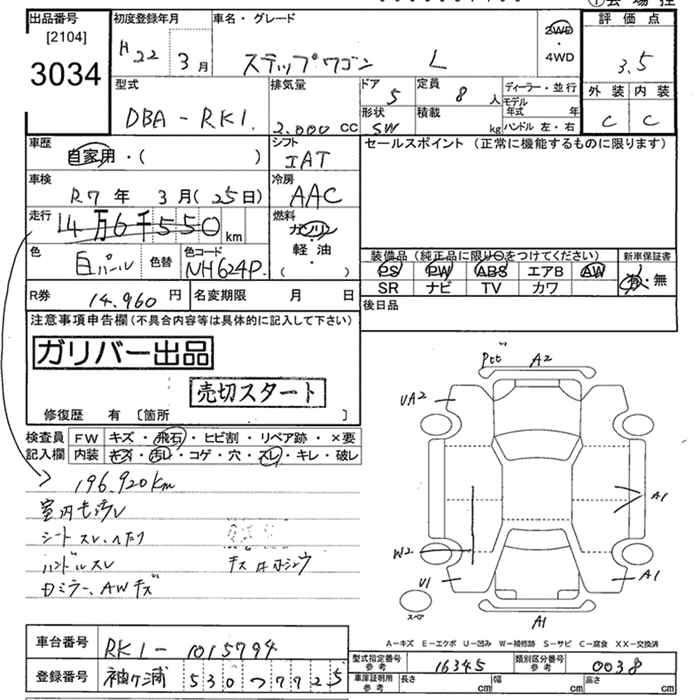 ①会場控
出品番号 初度登録年月 車名・グレード 評価点
[2104]
3034
H22 3月 ステップワゴン L 2WD・4WD 3.5
型式 排気量 ドア 定員 ディーラー・並行 外装 内装
DBA-RK1. 2.000 CC 5 8人 モデル年式 年 C C
形状 積載 ハンドル 左・右
SW kg
車歴 シフト セールスポイント (正常に機能するものに限ります)
自家用・( ) IAT
車検 冷房
R7年 3月(25日) AAC
走行 燃料
14万6千550 km ガソリン・軽油・( )
色 色替 色コード
白パール NH624P. 装備品(純正品に限り○をつけてください) 新車保証書
PS PW ABS エアB AW 有・無
SR ナビ TV カワ
R券 14.960円 名変期限 月 日 後日品
注意事項申告欄(不具合内容等は具体的に記入して下さい)
ガリバー出品
売切スタート
修復歴 有 〔箇所 〕
検査員 FW キズ・飛石・ヒビ割・リペア跡・×要
記入欄 内装 キズ・汚レ・コゲ・穴・スレ・キレ・破レ
196.920km
シート スレ、ヘタリ
ハンドルスレ
ミラー、AWキズ
A2
UA2
A1
W2
U1
A1
スペア
A1
A-キズ E-エクボ U-凹み W-補修跡 S-サビ C-腐食 XX-交換済
車台番号 RK1-1015794
型式指定番号 参考 16345 類別区分番号 参考 0038
登録番号 袖ヶ浦 530 つ 7725
車庫証明用 参考 長さ cm 幅 cm 高さ cm